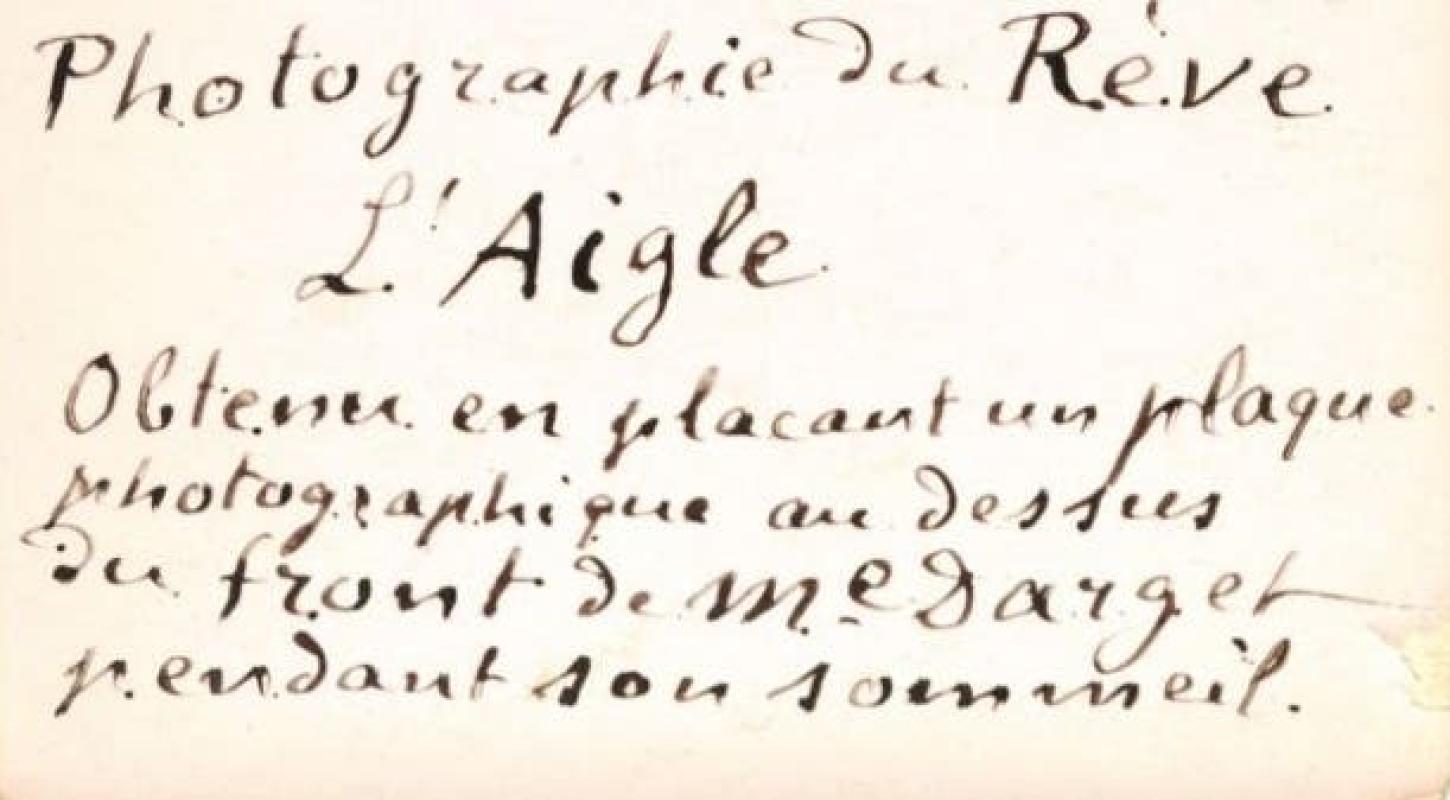 Photographie du Rêve.
L'Aigle.
Obtenu en placant un plaque
photographique au dessus
du front de Me Darget
pendant son sommeil.